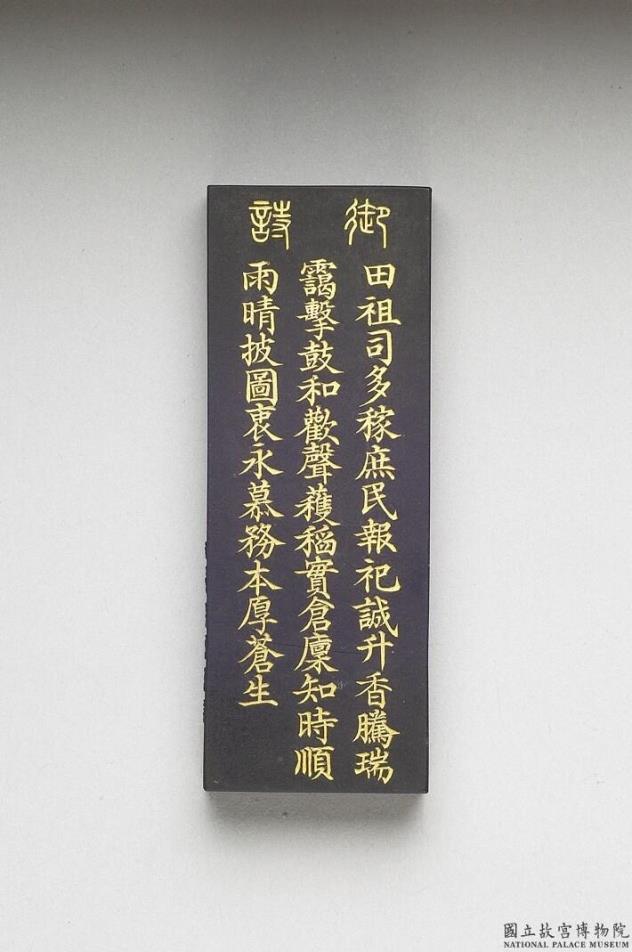 御
詩
田祖司多稼庶民報祀誠升香騰瑞
靄擊鼓和歡聲穫稻實倉廩知時順
雨晴披圖衷永慕務本厚蒼生
國立故宮博物院
NATIONAL PALACE MUSEUM